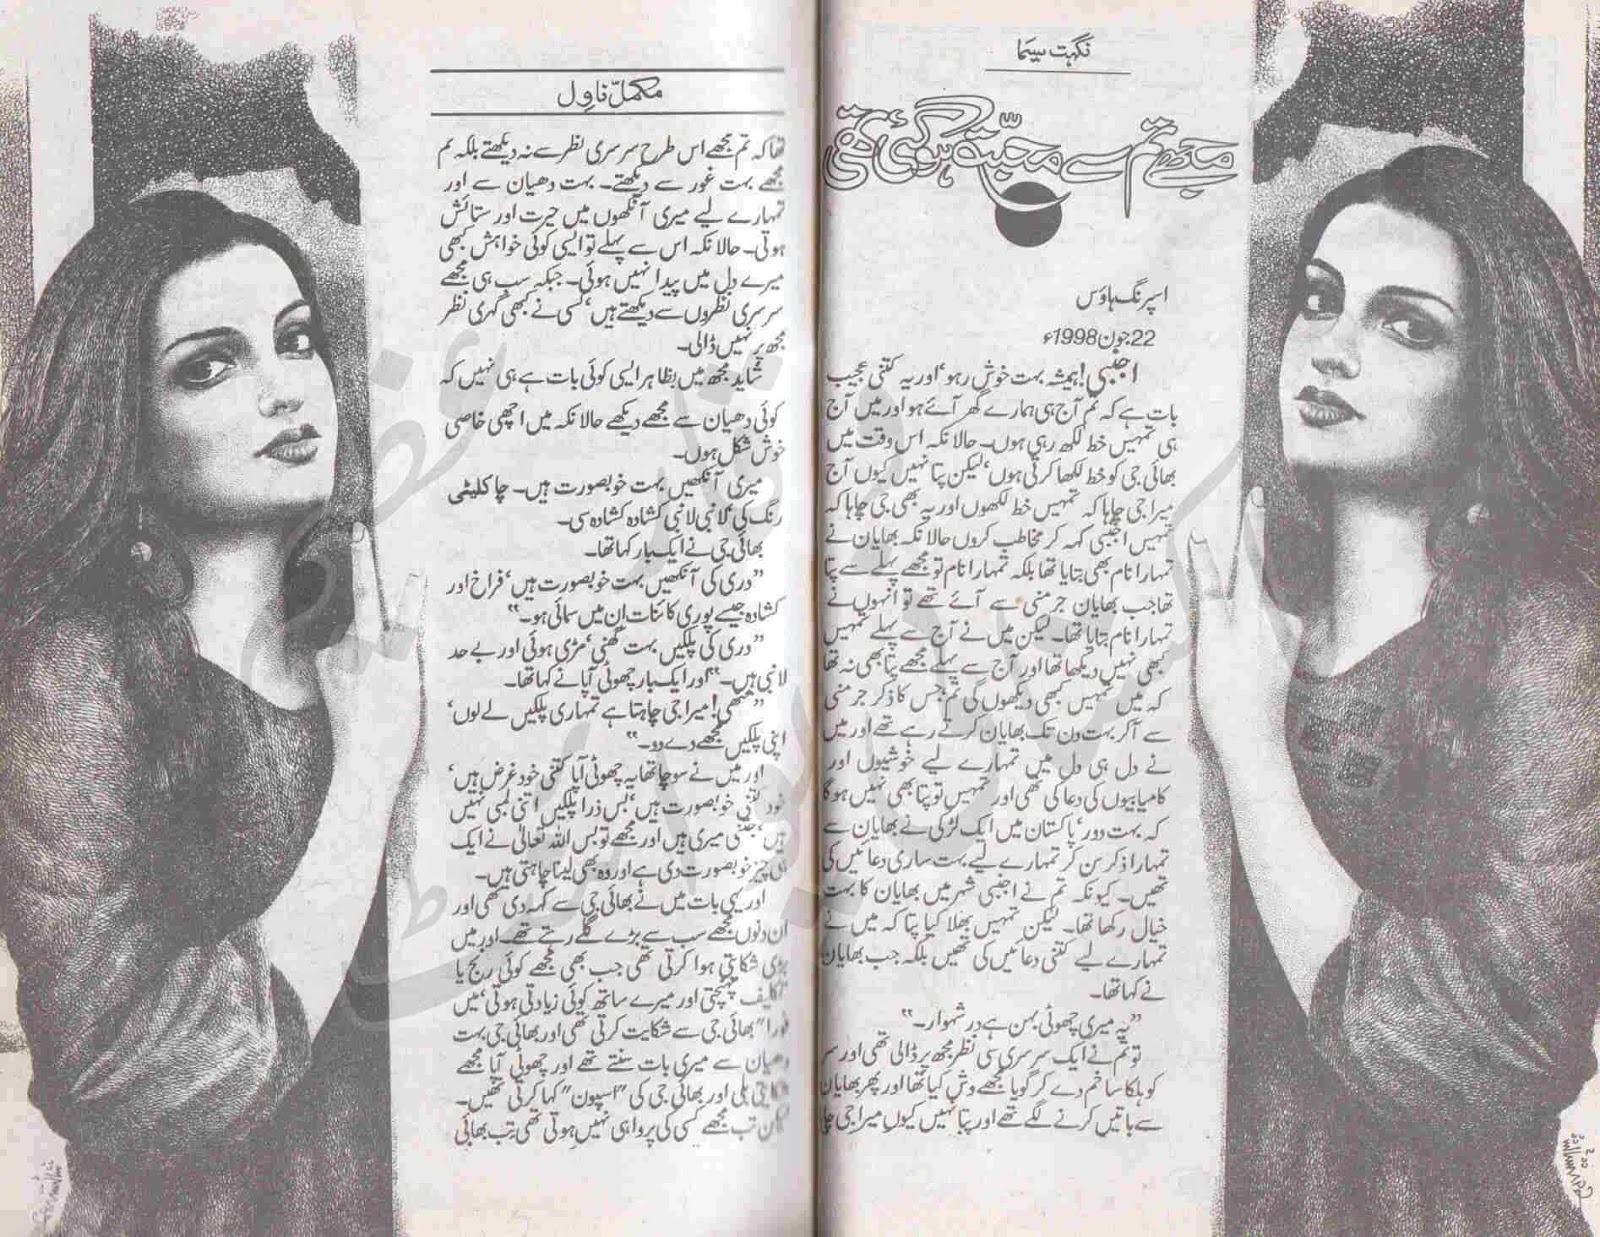 نگہت سیما
مجھے تم سے محبت ہو گئی تھی
اسپرنگ ہاؤس
22 جون 1998ء
اجنبی! ہمیشہ بہت خوش رہو‘ اور یہ کتنی عجیب
بات ہے کہ تم آج ہی ہمارے گھر آئے ہو اور میں آج
ہی تمہیں خط لکھ رہی ہوں۔ حالانکہ اس وقت میں
بھائی جی کو خط لکھا کرتی ہوں‘ لیکن پتا نہیں کیوں آج
میرا جی چاہا کہ تمہیں خط لکھوں اور یہ بھی جی چاہا کہ
تمہیں اجنبی کہہ کر مخاطب کروں حالانکہ بھایان نے
تمہارا نام بھی بتایا تھا بلکہ تمہارا نام تو مجھے پہلے سے پتا
تھا جب بھایان جرمنی سے آئے تھے تو انہوں نے
تمہارا نام بتایا تھا۔ لیکن میں نے آج سے پہلے تمہیں
کبھی نہیں دیکھا تھا اور آج سے پہلے مجھے پتا بھی نہ تھا
کہ میں تمہیں کبھی دیکھوں گی تم‘ جس کا ذکر جرمنی
سے آکر بہت دن تک بھایان کرتے رہے تھے اور میں
نے دل ہی دل میں تمہارے لیے خوشیوں اور
کامیابیوں کی دعا کی تھی اور تمہیں تو پتا بھی نہیں ہوگا
کہ بہت دور‘ پاکستان میں ایک لڑکی نے بھایان سے
تمہارا ذکر سن کر تمہارے لیے بہت ساری دعائیں کی
تھیں۔ کیونکہ تم نے اجنبی شہر میں بھایان کا بہت
خیال رکھا تھا۔ لیکن تمہیں بھلا کیا پتا کہ میں نے
تمہارے لیے کتنی دعائیں کی تھیں بلکہ جب بھایان
نے کہا تھا۔
”یہ میری چھوٹی بہن ہے در شہوار۔“
تو تم نے ایک سرسری سی نظر مجھ پر ڈالی تھی اور سر
کو ہلکا سا خم دے کر گویا مجھے وش کیا تھا اور پھر بھایان
سے باتیں کرنے لگے تھے اور پتا نہیں کیوں میرا جی چا
مکمل ناول
تھا کہ تم مجھے اس طرح سرسری نظر سے نہ دیکھتے بلکہ تم
مجھے بہت غور سے دیکھتے۔ بہت دھیان سے اور
تمہارے لیے میری آنکھوں میں حیرت اور ستائش
ہوتی۔ حالانکہ اس سے پہلے تو ایسی کوئی خواہش کبھی
میرے دل میں پیدا نہیں ہوئی۔ جبکہ سب ہی مجھے
سرسری نظروں سے دیکھتے ہیں‘ کسی نے کبھی گہری نظر
مجھ پر نہیں ڈالی۔
شاید مجھ میں بظاہر ایسی کوئی بات ہے ہی نہیں کہ
کوئی دھیان سے مجھے دیکھے حالانکہ میں اچھی خاصی
خوش شکل ہوں۔
میری آنکھیں بہت خوبصورت ہیں۔ چاکلیٹی
رنگ کی‘ لانبی لانبی کشادہ کشادہ سی۔
بھائی جی نے ایک بار کہا تھا۔
”دری کی آنکھیں بہت خوبصورت ہیں‘ فراخ اور
کشادہ جیسے پوری کائنات ان میں سمائی ہو۔“
”دری کی پلکیں بہت گھنی‘ مڑی ہوئی اور بے حد
لانبی ہیں۔“ اور ایک بار چھوٹی آپا نے کہا تھا۔
میرا جی چاہتا ہے تمہاری پلکیں لے لوں‘
اپنی پلکیں مجھے دے دو۔“
اور میں نے سوچا تھا یہ چھوٹی آپا کتنی خود غرض ہیں‘
خود کتنی خوبصورت ہیں‘ بس ذرا پلکیں اتنی لمبی نہیں
ہیں‘ جتنی میری ہیں اور مجھے تو بس اللہ تعالیٰ نے ایک
ہی چیز خوبصورت دی ہے اور وہ بھی لینا چاہتی ہیں۔
اور یہی بات میں نے بھائی جی سے کہہ دی تھی اور
ان دنوں مجھے سب سے بڑے گلے رہتے تھے۔ اور میں
بڑی شکایتی ہوا کرتی تھی جب بھی مجھے کوئی رنج یا
تکلیف پہنچتی اور میرے ساتھ کوئی زیادتی ہوتی‘ میں
فوراً بھائی جی سے شکایت کرتی تھی اور بھائی جی بہت
دھیان سے میری بات سنتے تھے اور چھوٹی آپا مجھے
بلی اور بھائی جی کی ”اسپون“ کہا کرتی تھیں۔
لیکن تب مجھے کسی کی پروا ہی نہیں ہوتی تھی۔ تب بھائی